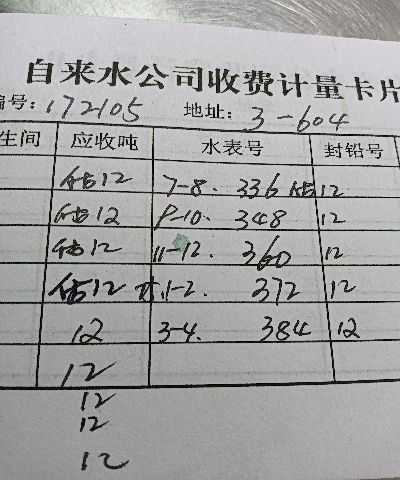 自来水公司收费计量卡片
编号: 172105 地址: 3-604
生间 应收吨 水表号 封铅号
估12 7-8. 336 估12
估12 9-10. 348 12
估12 11-12. 360 12
估12 1-2. 372 12
12 3-4. 384 12
12
12
12
12